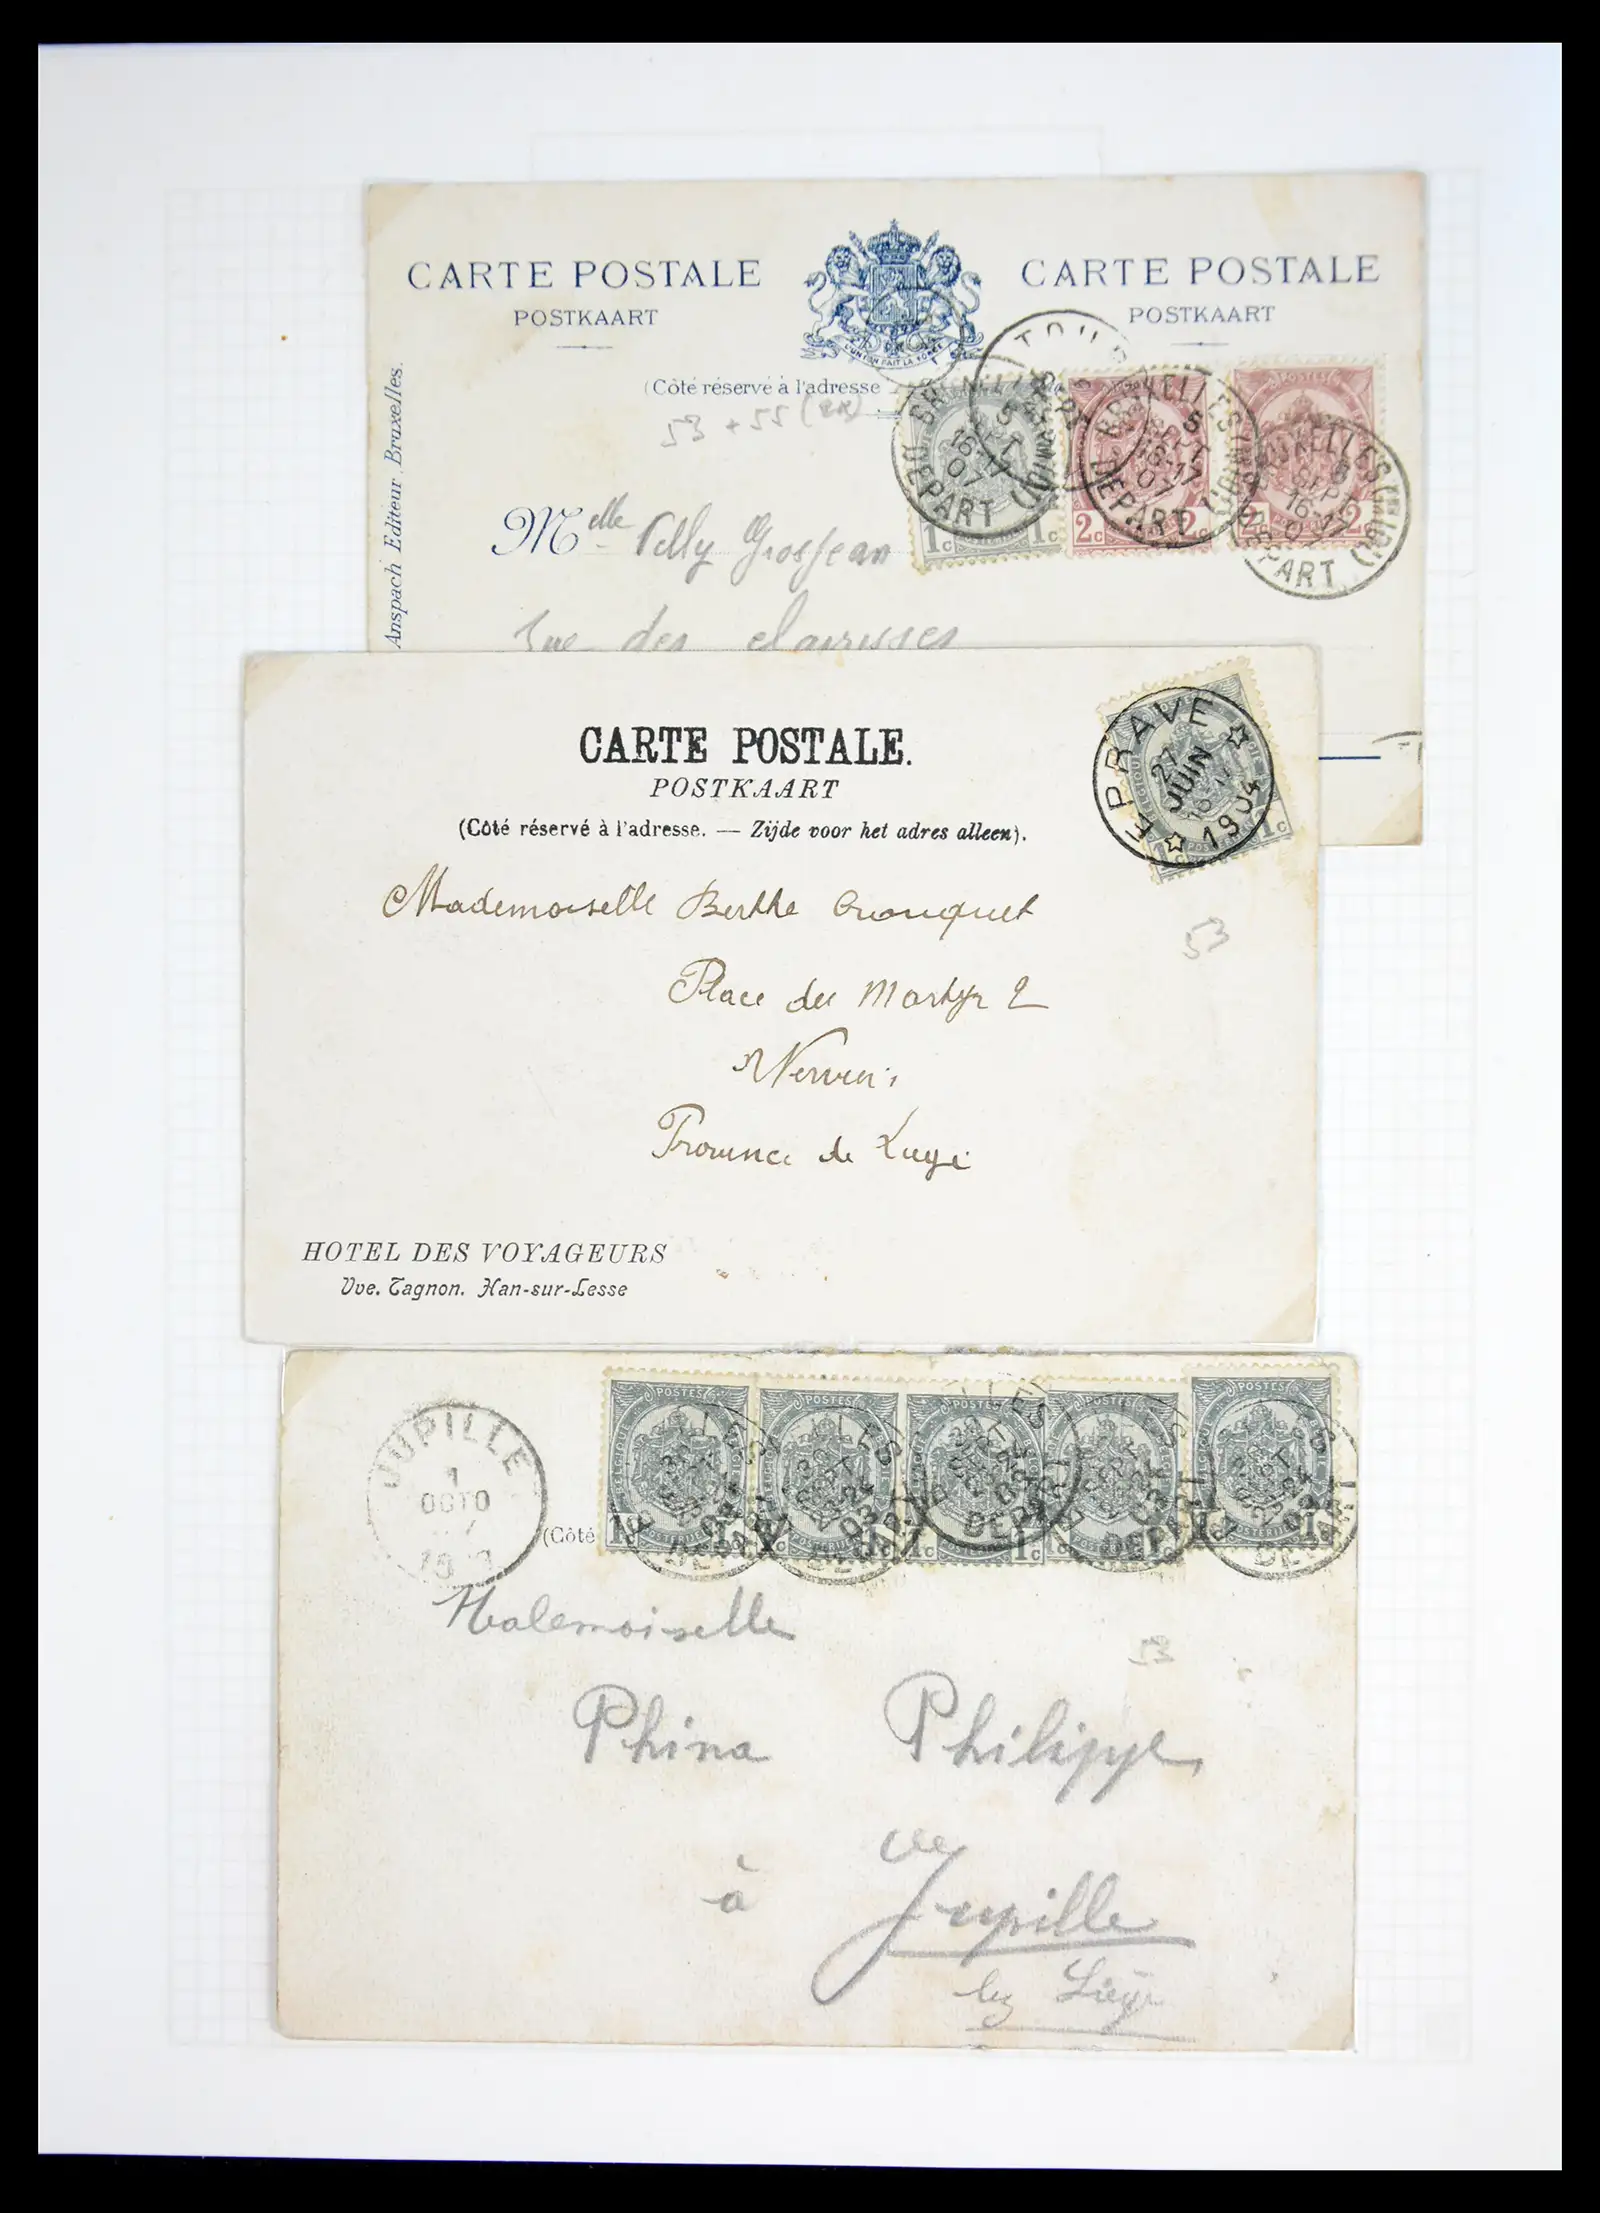 CARTE POSTALE
POSTKAART
CARTE POSTALE
POSTKAART
L'UNION FAIT LA FORCE
(Côté réservé à l'adresse
Anspach Editeur, Bruxelles.
53 + 55 (2x)
BRUXELLES (MIDI)
5 SEPT 16-17 07
DEPART
1c 1c
2c 2c
POSTES
2c
Melle Nelly Grosjean
rue des clairisses
CARTE POSTALE.
POSTKAART
(Côté réservé à l'adresse. — Zijde voor het adres alleen).
EPRAVE
27 JUIN
1904
BELGIQUE
1c 1c
Mademoiselle Berthe Cronquet
53
Place du Martyr 2
Verviers
Province de Liège
HOTEL DES VOYAGEURS
Vve. Tagnon. Han-sur-Lesse
JUPILLE
1
OCTO
POSTES POSTES POSTES POSTES POSTES
BELGIQUE
DEPART
(Côté
Mademoiselle
53
Phina Philippe
à Jupille
lez Liége